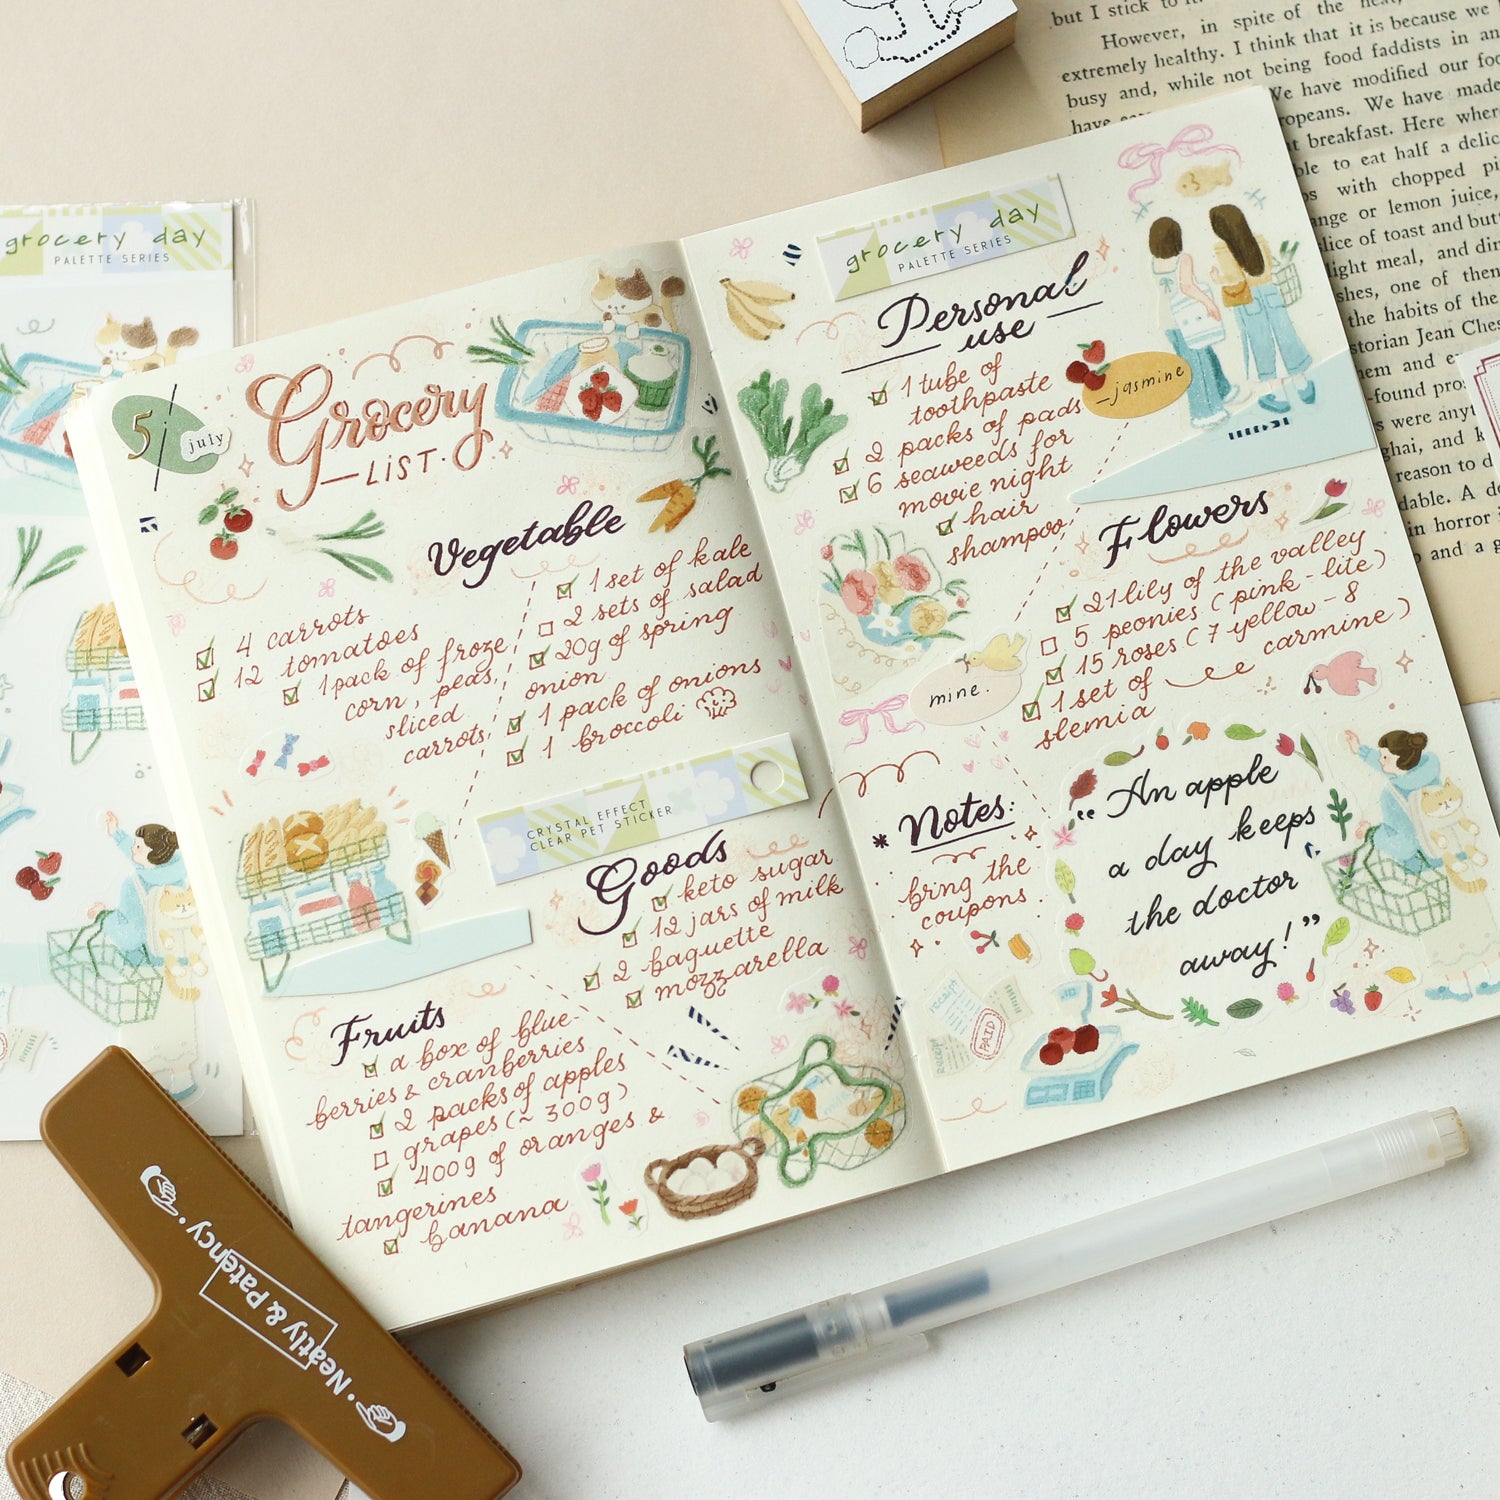 but I stick to it.
However, in spite of the heat,
extremely healthy. I think that it is because we
busy and, while not being food faddists in an
We have modified our foo
ropeans. We have made
breakfast. Here wher
to eat half a delic
with chopped pi
orange or lemon juice,
slice of toast and butt
light meal, and din
one of them
the habits of the
storian Jean Ches
found pro
were anyt
and k
reason to d
dable. A do
in horror
and a g
grocery day
PALETTE SERIES
5/
july
Grocery
LIST.
Vegetable
4 carrots
12 tomatoes
1 pack of froze
corn, peas,
sliced
carrots
1 set of kale
2 sets of salad
20g of spring
onion
1 pack of onions
1 broccoli
CRYSTAL EFFECT
CLEAR PET STICKER
Goods
keto sugar
12 jars of milk
2 baguette
mozzarella
Fruits
a box of blue-
berries & cranberries
2 packs of apples
grapes (~300g)
400g of oranges &
tangerines
banana
grocery day
PALETTE SERIES
Personal
use
1 tube of
toothpaste
2 packs of pads
6 seaweeds for
movie night
hair
shampoo
-jasmine
Flowers
21 lily of the valley
5 peonies (pink-lite)
15 roses (7 yellow-8
carmine)
1 set of
slemia
mine.
* Notes:
bring the
coupons.
"An apple
a day keeps
the doctor
away!"
receipt
Receipt
PAID
• Neatly & Patency •